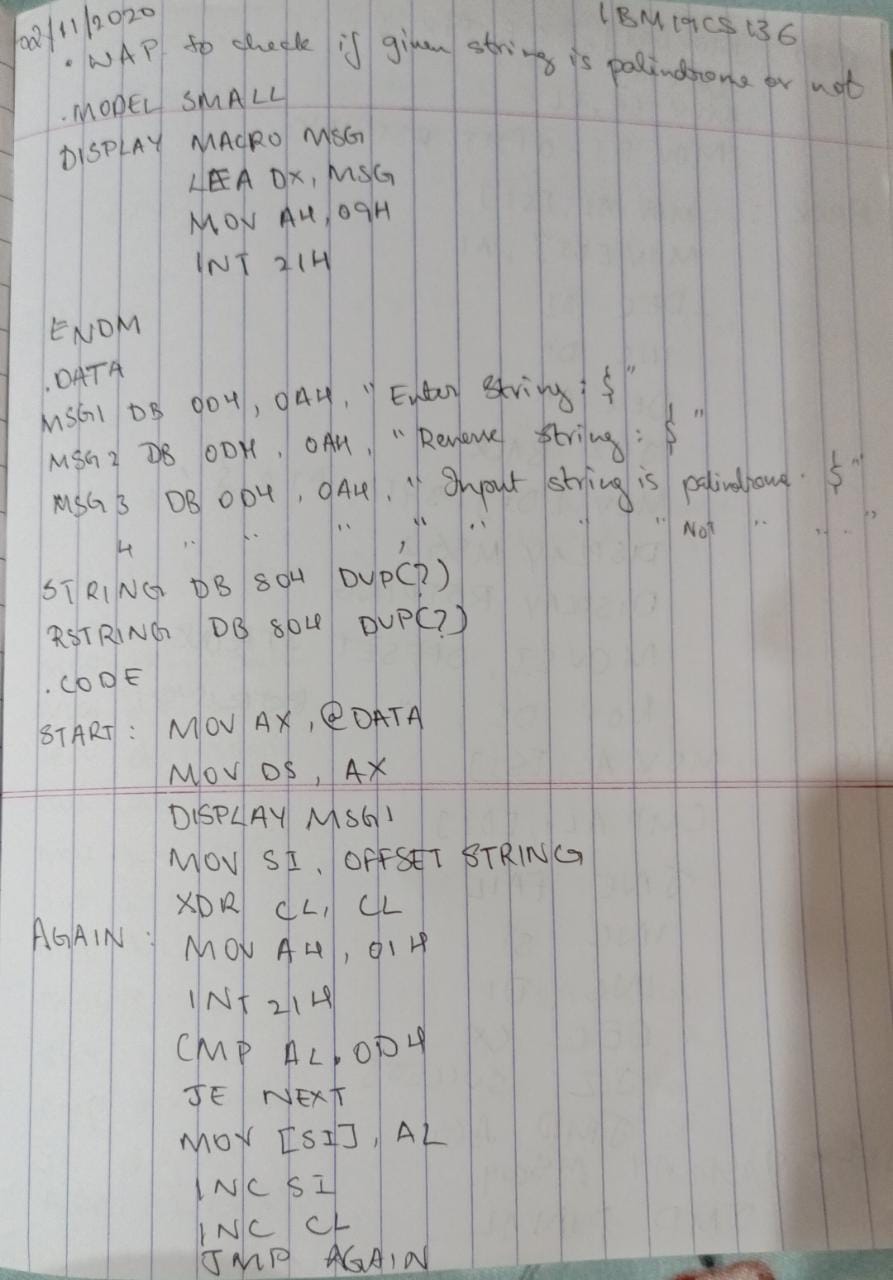 02/11/2020
1BM19CS136
. WAP to check if given string is palindrome or not
.MODEL SMALL
DISPLAY MACRO MSG
LEA DX, MSG
MOV AH, 09H
INT 21H
ENDM
.DATA
MSG1 DB 0DH, 0AH, "Enter String: $"
MSG2 DB 0DH, 0AH, "Reverse String: $"
MSG3 DB 0DH, 0AH, "Input string is palindrome. $"
4 " " " , " " " " Not " " "
STRING DB 80H DUP(?)
RSTRING DB 80H DUP(?)
.CODE
START: MOV AX, @DATA
MOV DS, AX
DISPLAY MSG1
MOV SI, OFFSET STRING
XOR CL, CL
AGAIN: MOV AH, 01H
INT 21H
CMP AL, 0DH
JE NEXT
MOV [SI], AL
INC SI
INC CL
JMP AGAIN